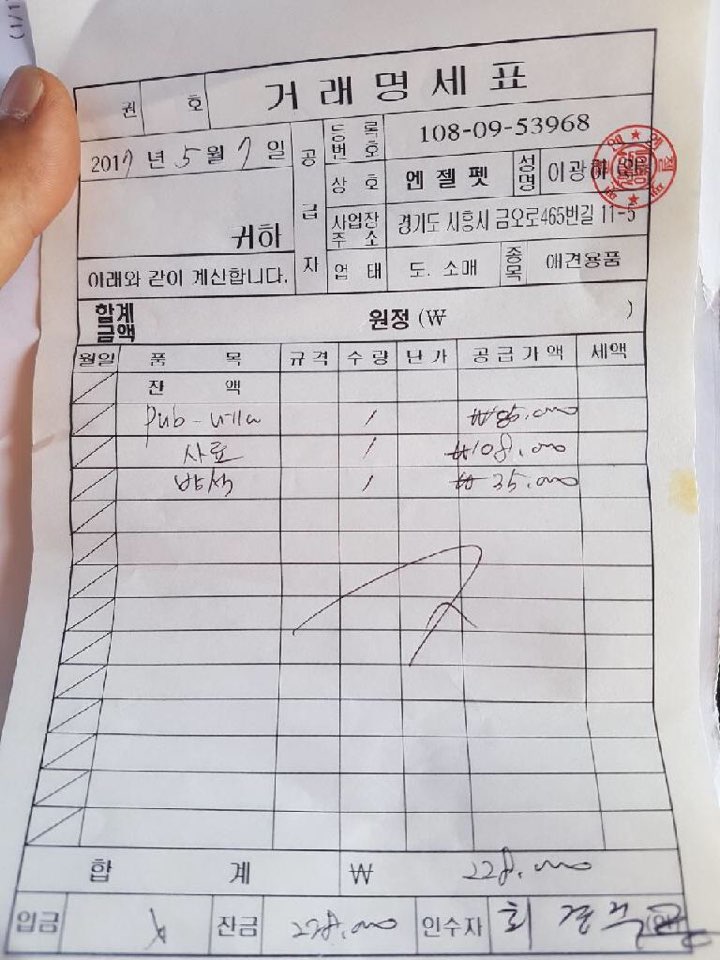 (1/1)
권 호 거래명세표
2017년 5월 7일
공급자
등록번호 108-09-53968
상호 엔젤펫 성명 이광하
귀하
사업장주소 경기도 시흥시 금오로465번길 11-5
아래와 같이 계산합니다.
업태 도. 소매 종목 애견용품
합계금액 원정 (₩ )
월일 품목 규격 수량 단가 공급가액 세액
잔액
1
사료 1 ₩108,000
1 ₩35,000
합계 ₩ 228,000
입금 잔금 228,000 인수자